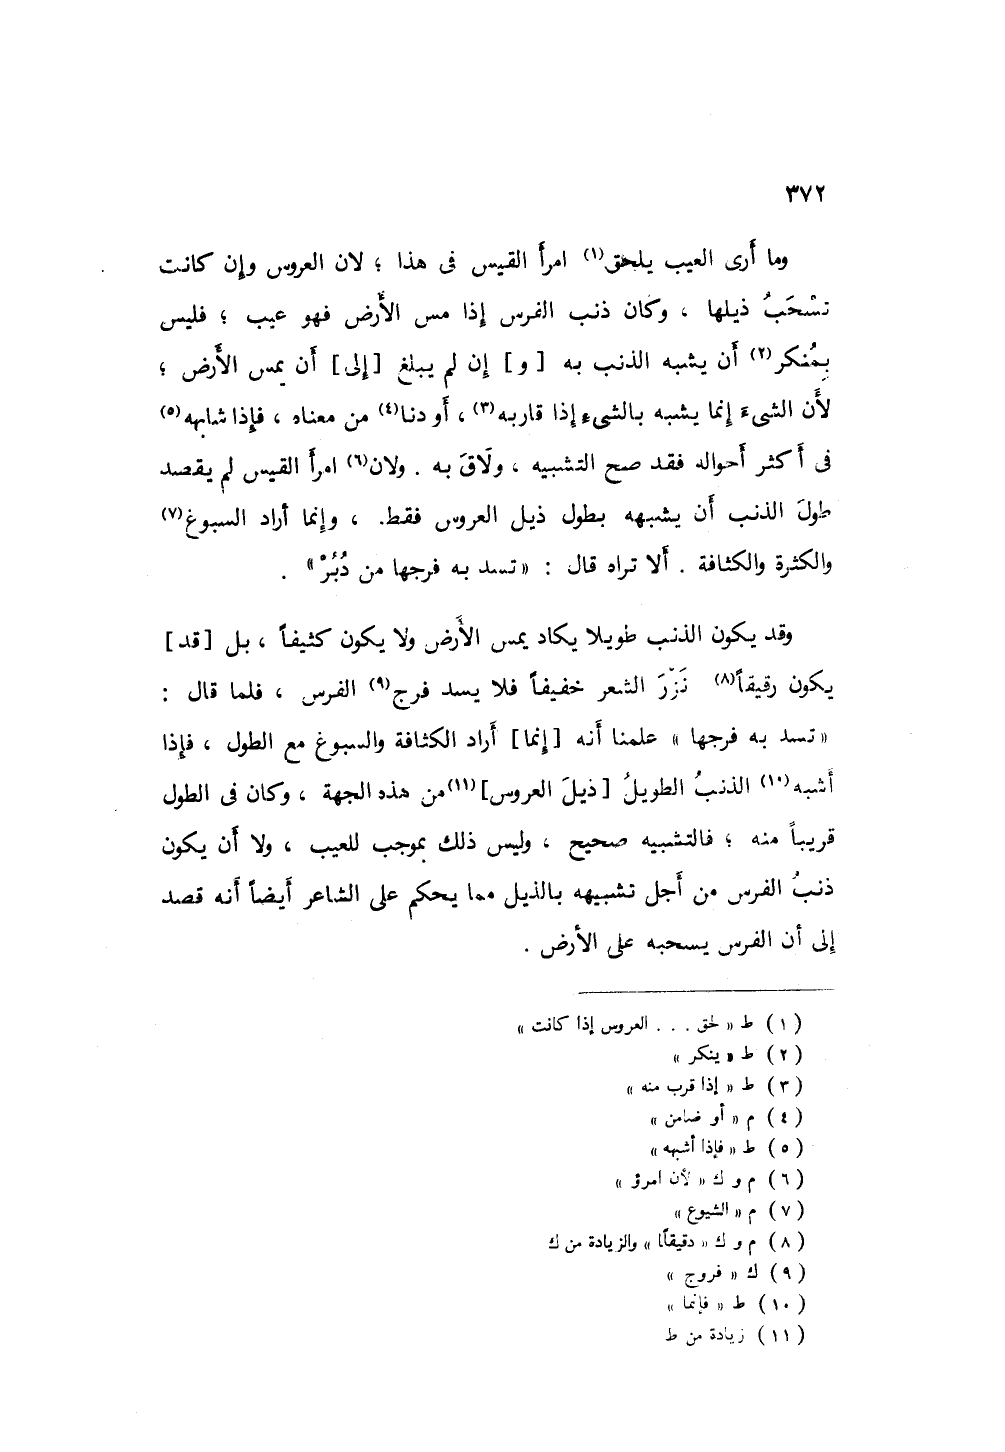 ٣٧٢
وما أرى العيب يلحق(١) امرأ القيس فى هذا ؛ لان العروس وإن كانت
تسْحَبُ ذيلها ، وكان ذنب الفرس إذا مس الأرض فهو عيب ؛ فليس
بِمُنكر(٢) أن يشبه الذنب به [ و ] إن لم يبلغ [إلى] أن يمس الأرض ؛
لأن الشىءَ إنما يشبه بالشىء إذا قاربه(٣) ، أو دنا(٤) من معناه ، فإذا شابهه(٥)
فى أكثر أحواله فقد صح التشبيه ، ولَاقَ به . ولان(٦) امرأ القيس لم يقصد
طولَ الذنب أن يشبهه بطول ذيل العروس فقط ، وإنما أراد السبوغ(٧)
والكثرة والكثافة . ألا تراه قال : « تسد به فرجها من دُبُرْ » .
وقد يكون الذنب طويلا يكاد يمس الأرض ولا يكون كثيفاً ، بل [قد]
يكون رقيقاً(٨) نَزْرَ الشعر خفيفاً فلا يسد فرج(٩) الفرس ، فلما قال :
« تسد به فرجها » علمنا أنه [إنما] أراد الكثافة والسبوغ مع الطول ، فإذا
أشبه(١٠) الذنبُ الطويلُ [ذيلَ العروس](١١) من هذه الجهة ، وكان فى الطول
قريباً منه ؛ فالتشبيه صحيح ، وليس ذلك بموجب للعيب ، ولا أن يكون
ذنبُ الفرس من أجل تشبيهه بالذيل مما يحكم على الشاعر أيضاً أنه قصد
إلى أن الفرس يسحبه على الأرض .
( ١ ) ط « لحق . . . العروس إذا كانت »
( ٢ ) ط « ينكر »
( ٣ ) ط « إذا قرب منه »
( ٤ ) م « أو ضامن »
( ٥ ) ط « فإذا أشبهه »
( ٦ ) م و ك « لأن امرؤ »
( ٧ ) م « الشيوع »
( ٨ ) م و ك « دقيقاً » والزيادة من ك
( ٩ ) ك « فروج »
( ١٠ ) ط « فإنما »
( ١١ ) زيادة من ط